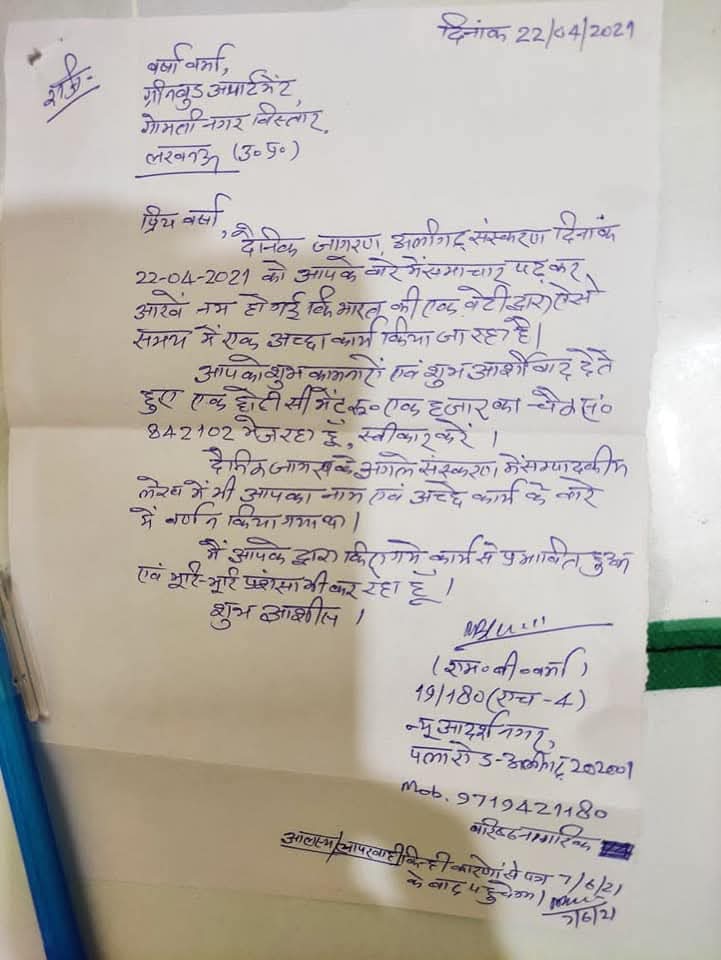 दिनांक 22/04/2021
वर्षा वर्मा,
ग्रीनवुड अपार्टमेंट,
गोमती नगर विस्तार,
लखनऊ (उ०प्र०)
प्रिय वर्षा,
दैनिक जागरण, अलीगढ़ संस्करण दिनांक
22-04-2021 को आपके बारे में समाचार पढ़कर
आखें नम हो गई कि भारत की एक बेटी द्वारा ऐसे
समय में एक अच्छा कार्य किया जा रहा है।
आपको शुभ कामनायें एवं शुभ आर्शीवाद देते
हुए एक छोटी सी भेंट रू० एक हजार का चैक सं०
842102 भेज रहा हूँ, स्वीकार करें ।
दैनिक जागरण के अगले संस्करण में सम्पादकीय
लेख में भी आपका नाम एवं अच्छे कार्य के बारे
में वर्णन किया गया था।
मैं आपके द्वारा किए गये कार्य से प्रभावित हुआ
एवं भूरि-भूरि प्रशंसा भी कर रहा हूँ ।
शुभ आशीष ।
(एम०बी०वर्मा)
19/180 (एच-4)
न्यू आदर्श नगर,
पला रोड-अलीगढ़ 202001
Mob. 9719421180
वरिष्ठ नागरिक
आलस्य/लापरवाही किन्ही कारणों से पत्र 7/6/21
के बाद पहुँचेगा।
7/6/21